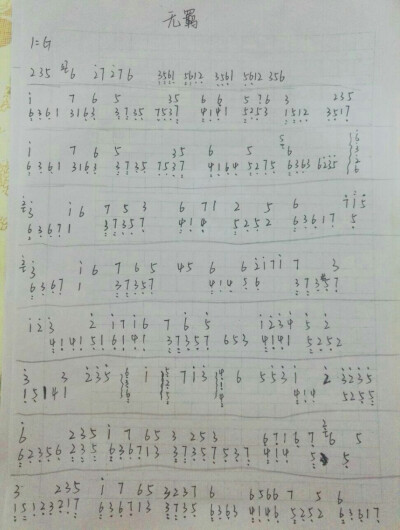 无羁
1=G
235 6 i7i76 3561 5612 3561 5612 356
i 7 6 5 35 6 6 5 76 3 235
6361 3163 3735 7537 4141 5253 1512 3517
i 7 6 5 35 6 5 6
6361 3161 3735 7537 4164 5275 6363 6235
3 i6 7 5 3 6 71 2 5 6 7i5
63671 37357 414 5252 63617 5
3 i6 7 6 5 45 6 62i7i 7 3
6367 1 37357 414 56 37357
i23 2 i7i6 7 6 5 i234 5 2
4141516141 37357 653 4141 5252
3 3 235 6 i 7i3 6 553i 2 3235
15141 414 5255
6 235 i 7 65 3 253 6767 6 5
62356 235 636713 37357537 414 5 5
3 235 i 7 65 3237 6 6566 7 5 6
15123217 636713 3735 6363 4146 5252 63617